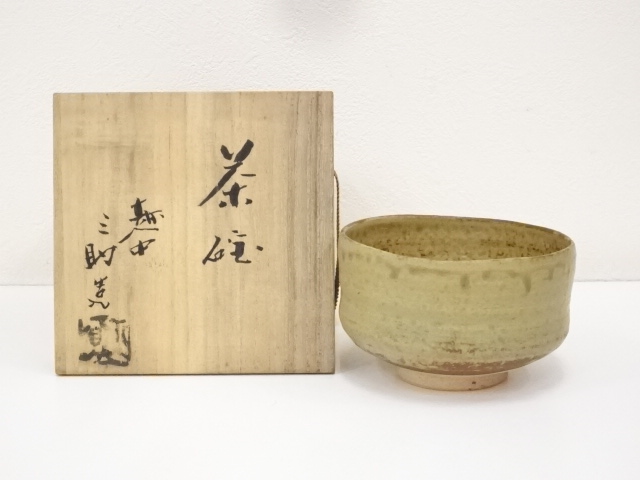 茶碗
越中
三助焼